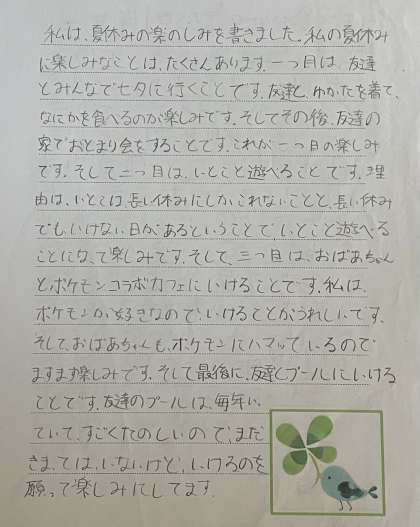 私は、夏休みの楽のしみを書きました。私の夏休み
に楽しみなことは、たくさんあります。一つ目は、友達
とみんなで七夕に行くことです。友達と、ゆかたを着て、
なにかを食べるのが楽しみです。そしてその後、友達の
家でおとまり会をすることです。これが一つ目の楽しみ
です。そして二つ目は、いとこと遊べることです。理
由は、いとこは長い休みにしかこれないことと、長い休み
でもいけない日があるということで、いとこと遊べる
ことになって楽しみです。そして、三つ目は、おばあちゃん
とポケモンコラボカフェにいけることです。私は、
ポケモンが好きなので、いけることがうれしいです。
そして、おばあちゃんも、ポケモンにハマっているので
ますます楽しみです。そして最後に、友達とプールにいける
ことです。友達のプールは、毎年い
ていて、すごくたのしいので、まだ
きまってはいないけど、いけるのを
願って楽しみにしてます。